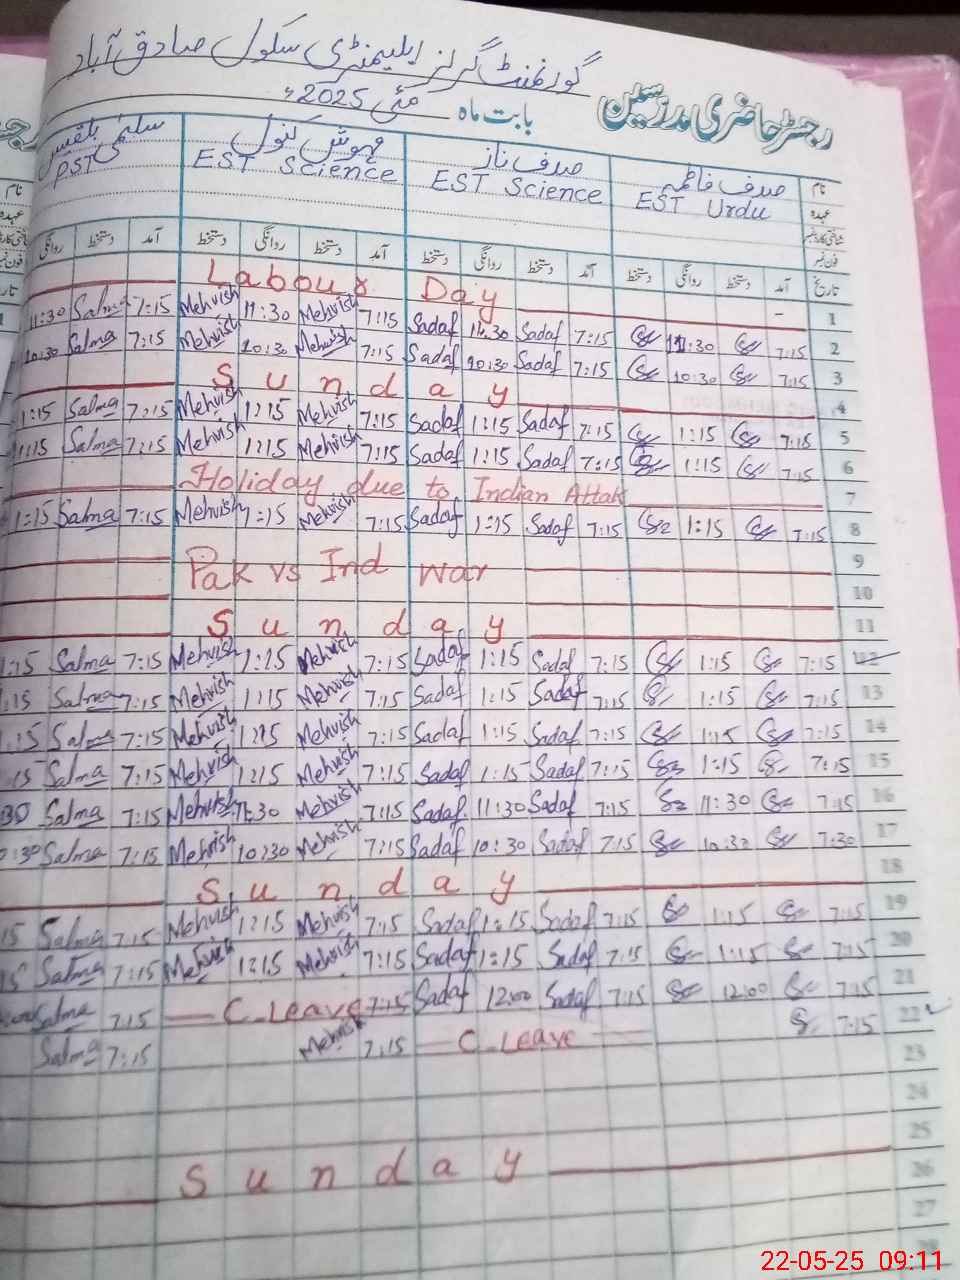 گورنمنٹ گرلز ایلیمنٹری سکول صادق آباد
رجسٹر حاضری مدرسین بابت ماہ مئی 2025ء
نام صدف فاطمہ صدف ناز مہوش کنول سلمیٰ بلقیس
عہدہ EST Urdu EST Science EST Science PST
فون نمبر
تاریخ آمد دستخط روانگی دستخط آمد دستخط روانگی دستخط آمد دستخط روانگی دستخط آمد دستخط روانگی
Labour Day 1
11:30 Salma 7:15 Mehvish 11:30 Mehvish 7:15 Sadaf 11:30 Sadaf 7:15 11:30 7:15 2
10:30 Salma 7:15 Mehvish 10:30 Mehvish 7:15 Sadaf 10:30 Sadaf 7:15 10:30 7:15 3
Sunday 4
1:15 Salma 7:15 Mehvish 1:15 Mehvish 7:15 Sadaf 1:15 Sadaf 7:15 1:15 7:15 5
1:15 Salma 7:15 Mehvish 1:15 Mehvish 7:15 Sadaf 1:15 Sadaf 7:15 1:15 7:15 6
Holiday due to Indian Attak 7
1:15 Salma 7:15 Mehvish 1:15 Mehvish 7:15 Sadaf 1:15 Sadaf 7:15 1:15 7:15 8
Pak vs Ind war 9
10
Sunday 11
1:15 Salma 7:15 Mehvish 1:15 Mehvish 7:15 Sadaf 1:15 Sadaf 7:15 1:15 7:15 12
:15 Salma 7:15 Mehvish 1:15 Mehvish 7:15 Sadaf 1:15 Sadaf 7:15 1:15 7:15 13
:15 Salma 7:15 Mehvish 1:15 Mehvish 7:15 Sadaf 1:15 Sadaf 7:15 1:15 7:15 14
:15 Salma 7:15 Mehvish 1:15 Mehvish 7:15 Sadaf 1:15 Sadaf 7:15 1:15 7:15 15
30 Salma 7:15 Mehvish 11:30 Mehvish 7:15 Sadaf 11:30 Sadaf 7:15 11:30 7:15 16
:30 Salma 7:15 Mehvish 10:30 Mehvish 7:15 Sadaf 10:30 Sadaf 7:15 10:30 7:30 17
Sunday 18
15 Salma 7:15 Mehvish 1:15 Mehvish 7:15 Sadaf 1:15 Sadaf 7:15 1:15 7:15 19
15 Salma 7:15 Mehvish 1:15 Mehvish 7:15 Sadaf 1:15 Sadaf 7:15 1:15 7:15 20
Salma 7:15 C.Leave 7:15 Sadaf 12:00 Sadaf 7:15 12:00 7:15 21
Salma 7:15 Mehvish 7:15 C.Leave 7:15 22
23
24
25
Sunday 26
27
28
22-05-25 09:11